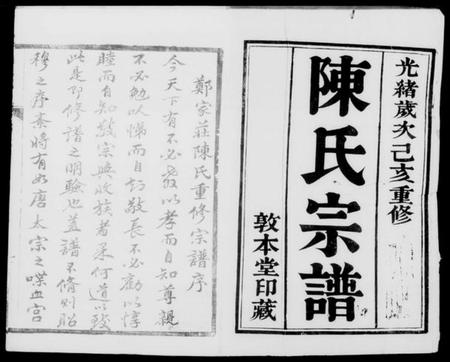 光緒歲次己亥重修
陳氏宗譜
敦本堂印藏
鄭家莊陳氏重修宗譜序
今天下有不必教以孝而自知尊親
不必勉以悌而自知敬長不必勸以惇
睦而自知敬宗與收族者果何道以致
此是即修譜之明驗也蓋譜不脩則昭
穆之序紊將有如唐太宗之喋血宮